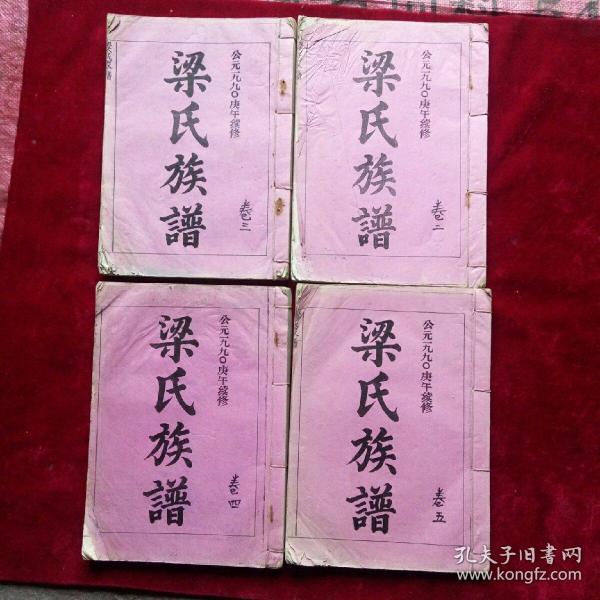 公元一九九〇庚午续修
梁氏族譜
卷三
公元一九九〇庚午续修
梁氏族譜
卷二
公元一九九〇庚午续修
梁氏族譜
卷四
公元一九九〇庚午续修
梁氏族譜
卷五
孔夫子旧书网
www.kongfz.com